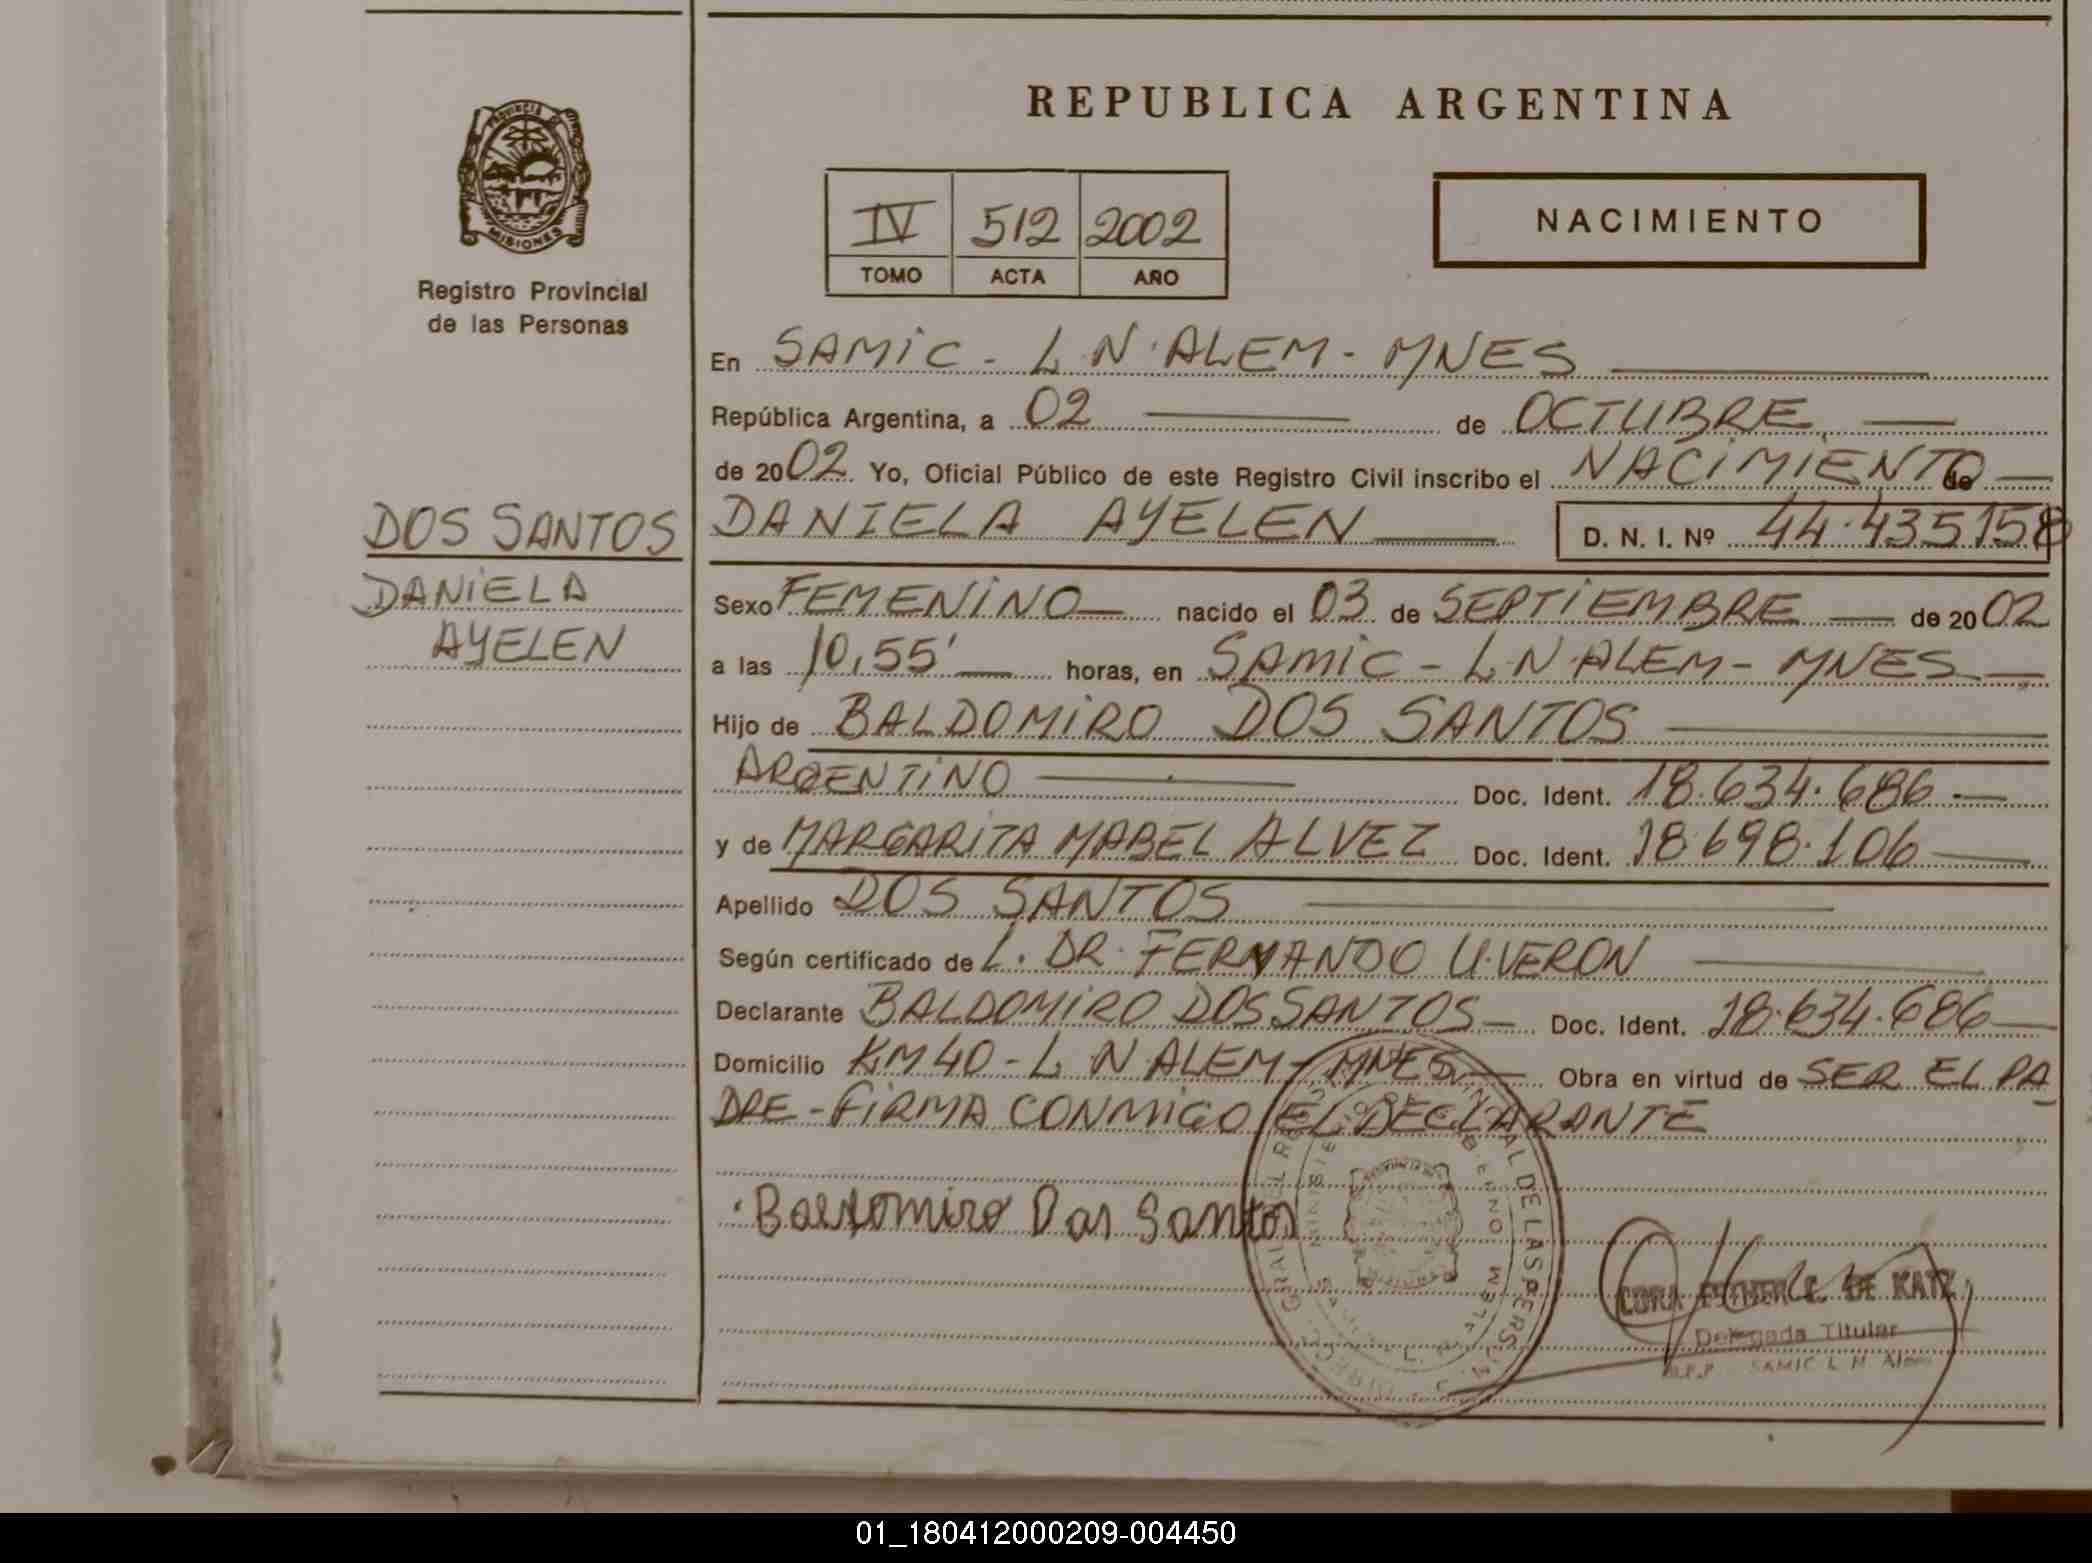 REPUBLICA ARGENTINA
PROVINCIA DE
MISIONES
Registro Provincial
de las Personas
IV 512 2002
TOMO ACTA AÑO
NACIMIENTO
En SAMIC - L.N. ALEM - MNES
República Argentina, a 02 de OCTUBRE
de 2002 Yo, Oficial Público de este Registro Civil inscribo el NACIMIENTO de
DOS SANTOS
DANIELA
AYELEN
DANIELA AYELEN D. N. I. Nº 44.435158
Sexo FEMENINO nacido el 03 de SEPTIEMBRE de 2002
a las 10,55' horas, en SAMIC - L.N. ALEM - MNES
Hijo de BALDOMIRO DOS SANTOS
ARGENTINO Doc. Ident. 18.634.686
y de MARGARITA MABEL ALVEZ Doc. Ident. 18.698.106
Apellido DOS SANTOS
Según certificado de L. DR. FERNANDO U. VERON
Declarante BALDOMIRO DOS SANTOS Doc. Ident. 18.634.686
Domicilio KM 40 - L N ALEM - MNES Obra en virtud de SER EL PA
DRE - FIRMA CONMIGO EL DECLARANTE
Baldomiro Dos Santos
DE LAS PERS
DE KATZ
Delegada Titular
SAMIC L N Alem
01_180412000209-004450